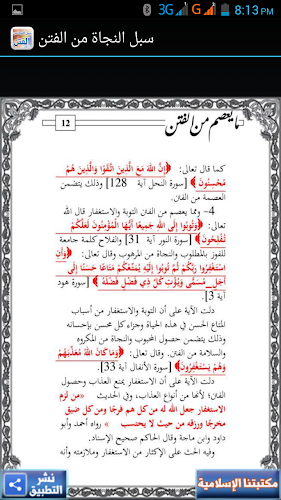 3G G 8:13 PM
سبل النجاة من الفتن
ما يعصم من الفتن
12
كما قال تعالى: ﴿إِنَّ اللَّهَ مَعَ الَّذِينَ اتَّقَوْا وَالَّذِينَ هُمْ
مُحْسِنُونَ﴾ [سورة النحل آية 128] وذلك يتضمن
العصمة من الفتن.
4- ومما يعصم من الفتن التوبة والاستغفار قال الله
تعالى: ﴿وَتُوبُوا إِلَى اللَّهِ جَمِيعًا أَيُّهَا الْمُؤْمِنُونَ لَعَلَّكُمْ
تُفْلِحُونَ﴾ [سورة النور آية 31] والفلاح كلمة جامعة
للفوز بالمطلوب والنجاة من المرهوب وقال تعالى: ﴿وَأَنِ
اسْتَغْفِرُوا رَبَّكُمْ ثُمَّ تُوبُوا إِلَيْهِ يُمَتِّعْكُمْ مَتَاعًا حَسَنًا إِلَى
أَجَلٍ مُسَمًّى وَيُؤْتِ كُلَّ ذِي فَضْلٍ فَضْلَهُ﴾ [سورة هود
آية 3].
دلت الآية على أن التوبة والاستغفار من أسباب
المتاع الحسن في هذه الحياة وجزاء كل محسن بإحسانه
وذلك يتضمن حصول المحبوب والنجاة من المكروه
والسلامة من الفتن. وقال تعالى: ﴿وَمَا كَانَ اللَّهُ مُعَذِّبَهُمْ
وَهُمْ يَسْتَغْفِرُونَ﴾ [سورة الأنفال آية 33].
دلت الآية على أن الاستغفار يمنع العذاب وحصول
الفتن؛ لأنها من أنواع العذاب، وفي الحديث «من لزم
الاستغفار جعل الله له من كل هم فرجًا ومن كل ضيق
مخرجًا ورزقه من حيث لا يحتسب» رواه أحمد وأبو
داود وابن ماجة وقال الحاكم صحيح الإسناد.
وفيه الحث على الإكثار من الاستغفار وملازمته وأنه
نشر التطبيق
مكتبتنا الإسلامية